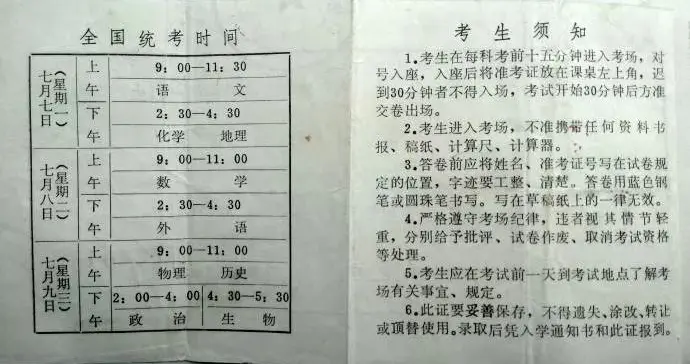 全国统考时间
七月七日
（星期一）
上午
9：00—11：30
语文
下午
2：30—4：30
化学 地理
七月八日
（星期二）
上午
9：00—11：00
数学
下午
2：30—4：30
外语
七月九日
（星期三）
上午
9：00—11：00
物理 历史
下午
2：00—4：00
政治
4：30—5：30
生物
考生须知
1.考生在每科考前十五分钟进入考场，对
号入座，入座后将准考证放在课桌左上角，迟
到30分钟者不得入场，考试开始30分钟后方准
交卷出场。
2.考生进入考场，不准携带任何资料书
报、稿纸、计算尺、计算器。
3.答卷前应将姓名、准考证号写在试卷规
定的位置，字迹要工整、清楚。答卷用蓝色钢
笔或圆珠笔书写。写在草稿纸上的一律无效。
4.严格遵守考场纪律，违者视其情节轻
重，分别给予批评、试卷作废、取消考试资格
等处理。
5.考生应在考试前一天到考试地点了解考
场有关事宜、规定。
6.此证要妥善保存，不得遗失、涂改、转让
或顶替使用。录取后凭入学通知书和此证报到。